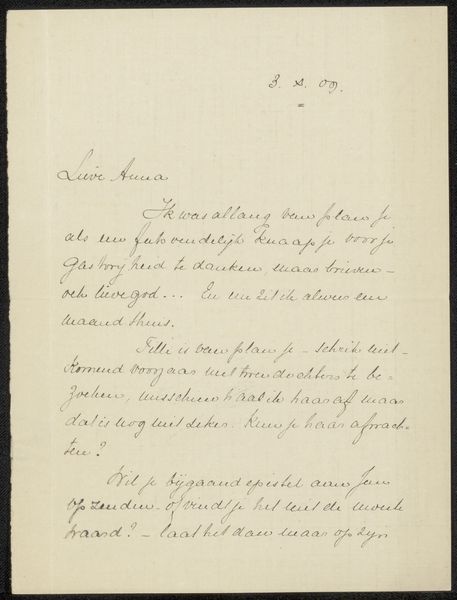 3. X. 09.
Lieve Anna
Ik was al lang van plan je
als een fatsoendelijk knaapje voor je
gastvrijheid te danken, maar brieven -
och lieve god... En nu zit ik alweer een
maand thuis.
Tilli is van plan je - schrik niet -
komend voorjaar met twee dochters te be-
zoeken, misschien haal ik haar af maar
dat is nog niet zeker. Kun je haar afwach-
ten?
Wil je bijgaand epistel aan Jan
op zenden - of vindt je het niet de moeite
waard? - laat het dan maar op zijn